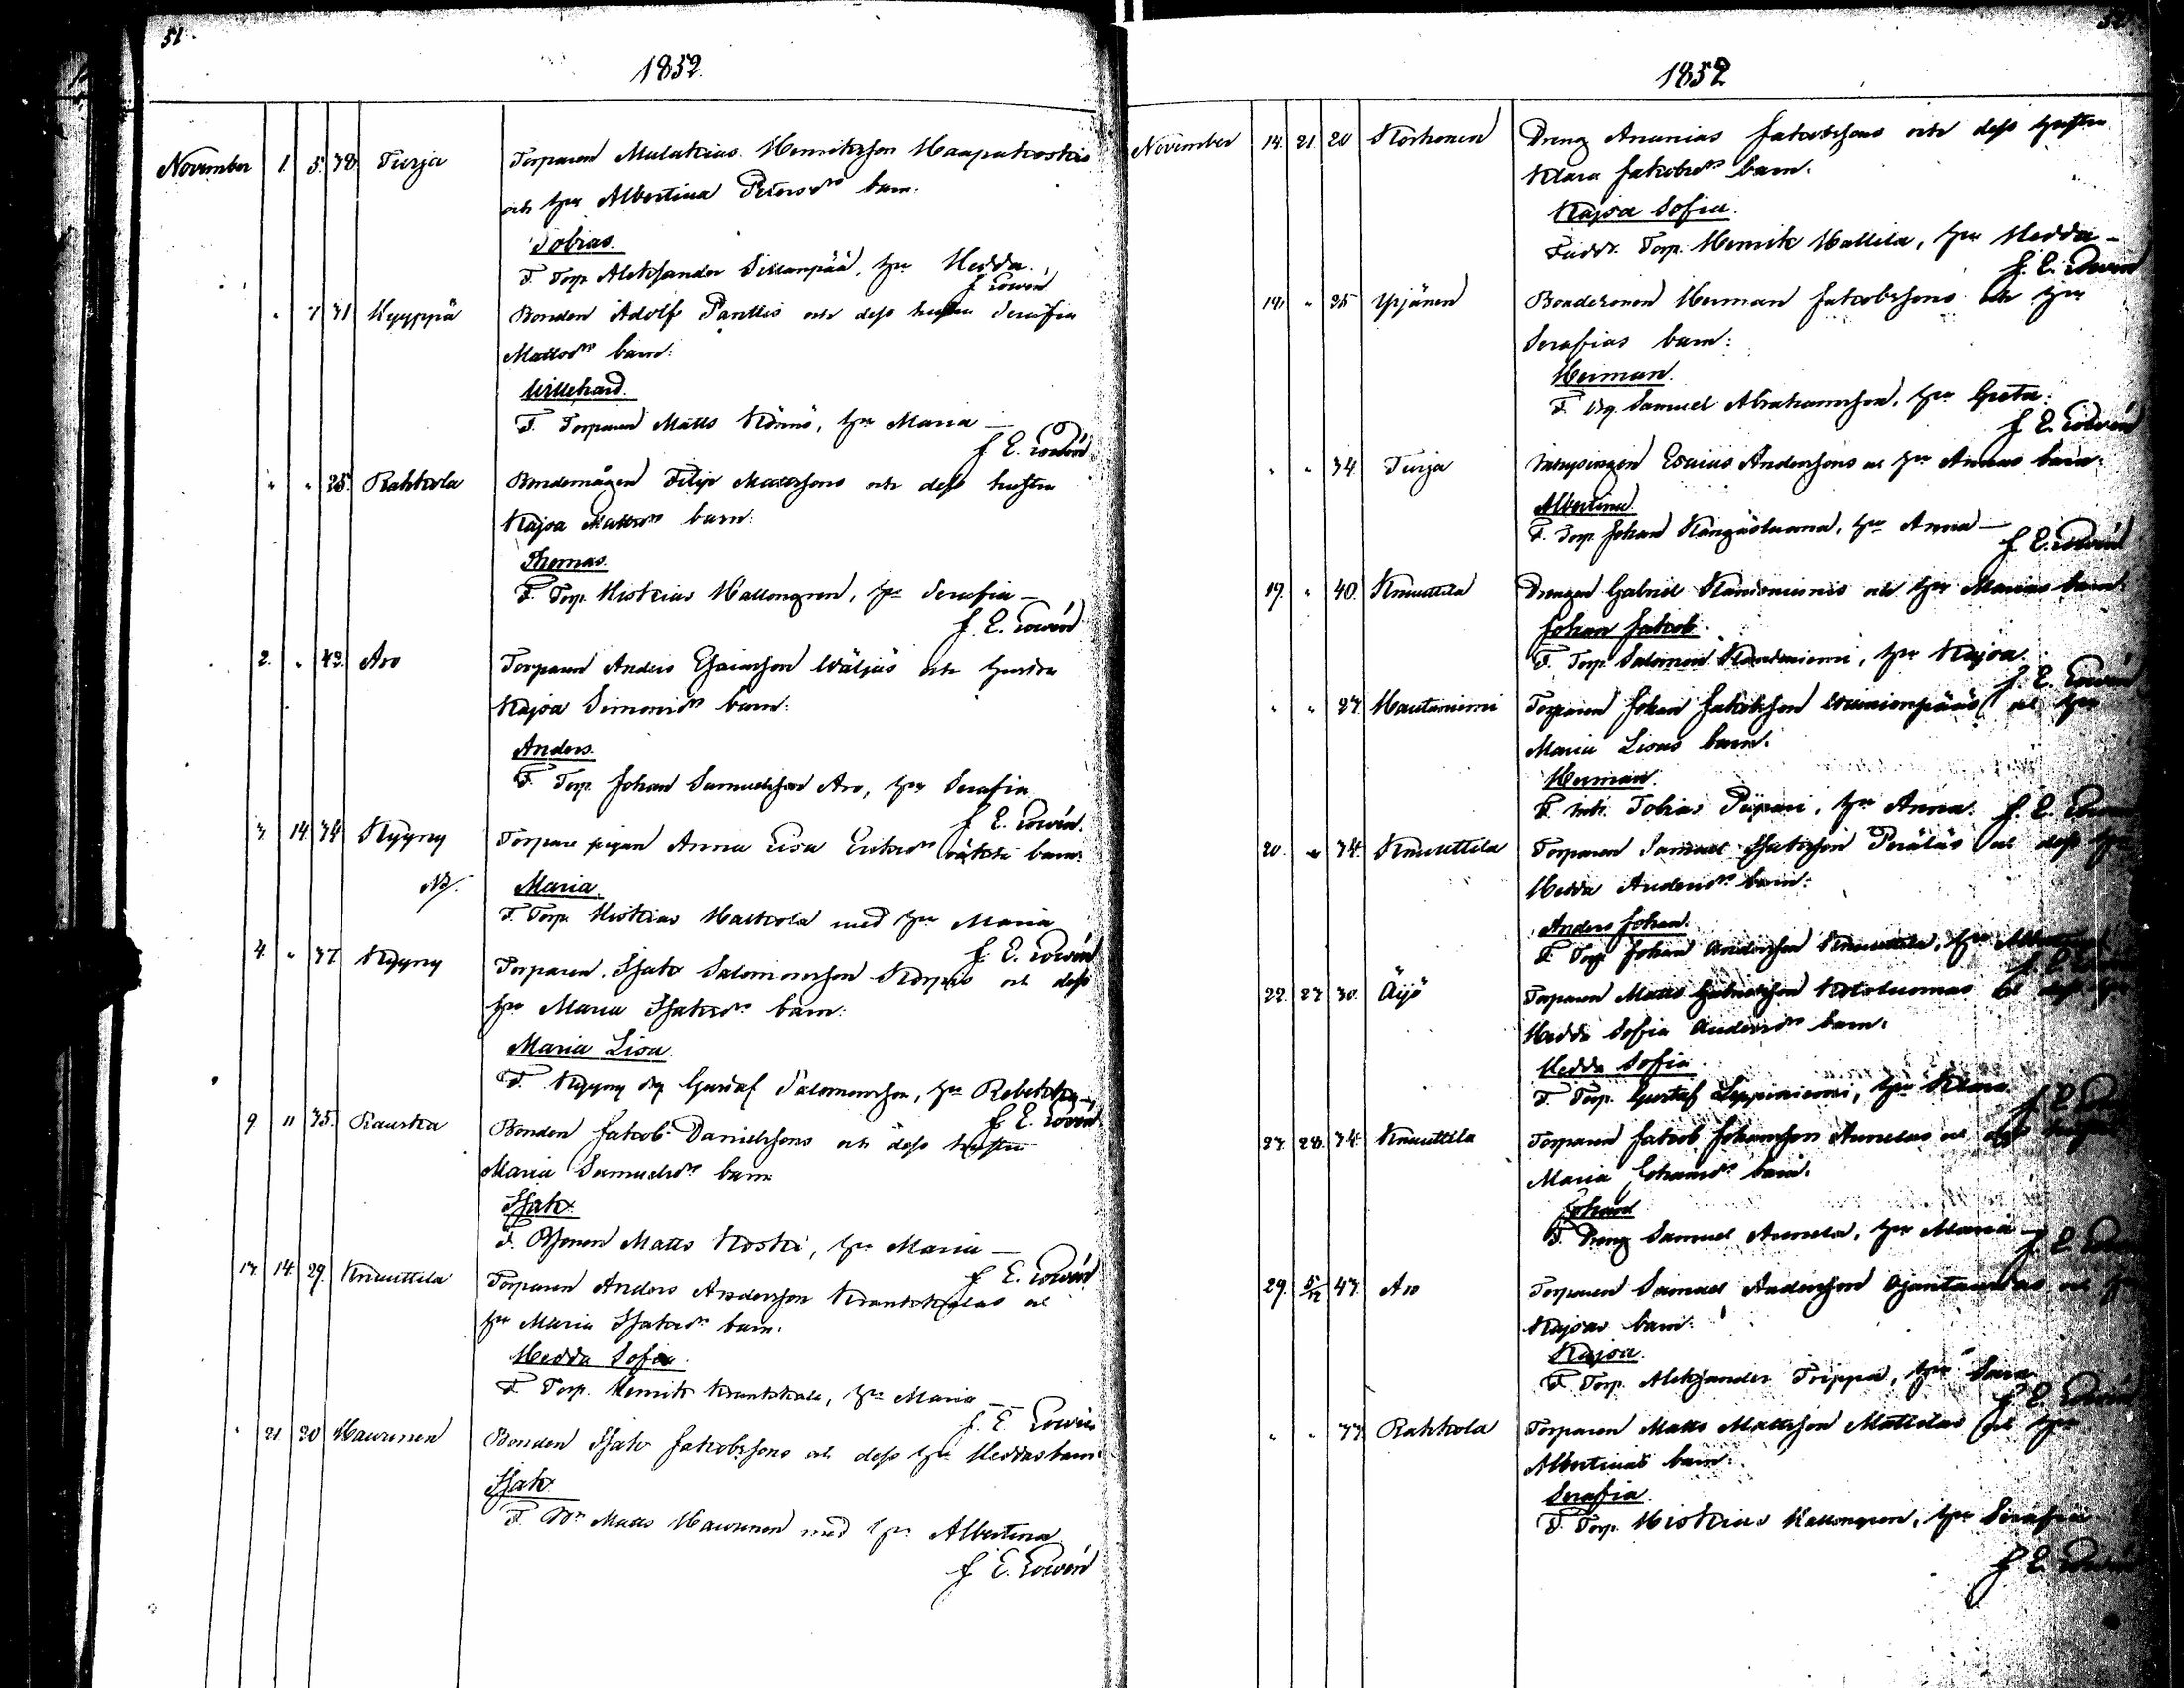 51.
1852.
November 1. 5. 38 Turja Torparen Malakias Henriksson Haapakoskis
och hu Albertina Petersdr barn.
Tobias.
F. Torp Aleksander Sillanpää, hu Hedda.
J Lowén
" 7 31 Kyyppä Bonden Adolf Panttis och dess hustru Serafia
Mattsdr barn:
Willehard.
F. Torparen Matts Könnö, hu Maria —
J. E. Lowén
" " 25. Rahkola Bondemågen Filip Mattssons och dess hustru
Kajsa Mattsdr barn:
Thomas.
F. Torp. Hiskias Hallongren, hu Serafia —
J. E. Lowén
2. " 42. Aro Torparen Anders Esaiasson Wäljäs och hustru
Kajsa Simonsdr barn:
Anders.
F. Torp Johan Samuelsson Aro, hu Serafia
J E. Lowén.
3 14 34 Kyyny Torpare pigan Anna Lisa Eriksdr oäkta barn
NB. Maria.
F. Torp. Hiskias Halkola med hu Maria
J. E. Lowén
4. " 37 Kyyny Torparen Isak Salomonsson Korpis och dess
hu Maria Isaksdr barn:
Maria Lisa
F. Kyyny dg Gustaf Salomonsson, hu Rebekka —
J. E. Lowén
9 " 35. Rauska Bonden Jakob Danielssons och dess hustru
Maria Samuelsdr barn
Isak.
F. Bsonen Matts Koski, hu Maria —
J E. Lowén
13. 14. 29. Knuuttila Torparen Anders Andersson Krankkalas och
hu Maria Isaksdr barn.
Hedda Sofia.
F. Torp. Henrik Krankkala, hu Maria
J. E. Lowén
" 21 20 Haurunen Bonden Isak Jakobssons och dess hu Heddas barn
Isak
F. Bn Matts Haurunen med hu Albertina
J E. Lowén
1852
November 14. 21. 20 Korhonen Dreng Ananias Jakobssons och dess hustru
Klara Jakobsdr barn.
Kajsa Sofia.
Faddr. Torp. Henrik Hallila, hu Hedda —
J. E. Lowén
18. " 25 Ypjänen Bondesonen Herman Jakobssons och hu
Serafias barn:
Herman.
F. Dg. Samuel Abrahamsson, hu Greta.
J E. Lowén
" " 34. Turja Inhysingen Esaias Anderssons och hu Annas barn.
Albertina
F. Torp Johan Kangasluoma, hu Anna —
J E. Lowén
19. " 40. Knuuttila Drengen Gabriel och hu Marias barn.
Johan Jakob.
F. Torp. Salomon hu Kajsa.
J. E. Lowén
" " 27 Hautaniemi Torparen Johan Jakobsson och hu
Maria Lisas barn.
Herman
F. Inh. Tobias Piipari, hu Anna. J. E. Lowén
20. " 34. Knuuttila Torparen Samuel Isaksson Peräläs och dess hu
Hedda Andersdr barn:
Anders Johan.
F. Torp Johan Andersson Knuuttila, hu
22. 23 30. Äijö Torparen Matts Gabrielsson Kotoluomas och dess hu
Hedda Sofia Andersdr barn.
Hedda Sofia.
F. Torp. Gustaf Leppiniemi, hu Klara
27. 28. 34. Knuuttila Torparen Jakob Johansson Annalas och dess hustru
Maria Johansdr barn.
Johan
F. Dreng Samuel Annala, hu Maria —
J E Lowén
29. 5/12 47. Aro Torparen Samuel Andersson och hu
Kajsas barn:
Kajsa.
F. Torp. Aleksander Trippa, hu Sara
J E. Lowén
" " 33 Rahkola Torparen Matts Mattsson Mattilas och hu
Albertinas barn:
Serafia.
F. Torp. Hiskias Hallongren, hu Serafia
J E. Lowén